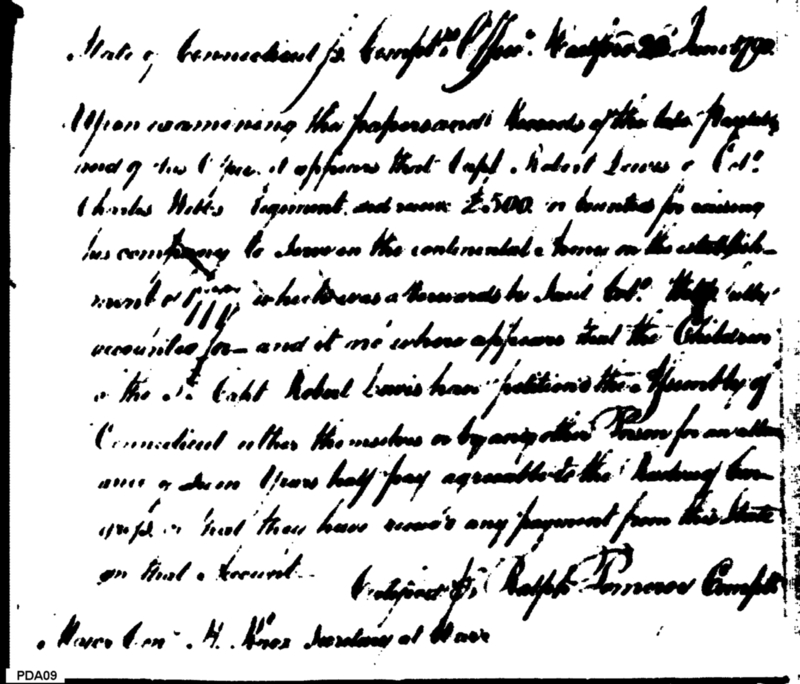 State of Connecticut ss. Comptrs Office. Hartford June 1790.
Upon examining the papers and Records of the late Pay table
and of this Office it appears that Capt. Robert Lewis of Colo.
Charles Webbs Regiment did receive £500 in bounties for raising
his company to Serve in the continental Army on the establish-
ment of which was afterwards by Said Colo. Webb fully
accounted for – and it no where appears that the Children
of the Sd. Capt Robert Lewis have petitiond the Assembly of
Connecticut either themselves or by any other Person for an allow
ance of Seven Years half pay agreeable to the of Con-
gress or that they have receivd any payment from this State
on that Account.
Certified pr. Ralph Pomeroy Compt
Major Genl H. Knox Secretary at Warr
PDA09